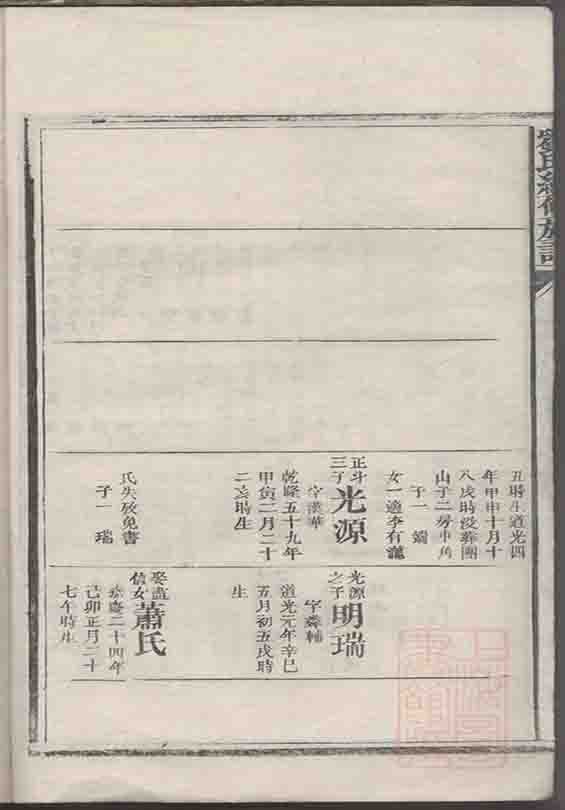 氏續修族譜
丑時生道光四
年甲申十月十
八戌時没葬團
山子二房中角
子一 端
女一適李有瀧
正斗
三子
光源
字漢華
乾隆五十九年
甲寅二月二十
二亥時生
氏失攷免書
子一 瑞
光源
之子
明瑞
字 輔
道光元年辛巳
五月初五戌時
生
娶
信女
蕭氏
嘉慶二十四年
己卯正月二十
七午時生